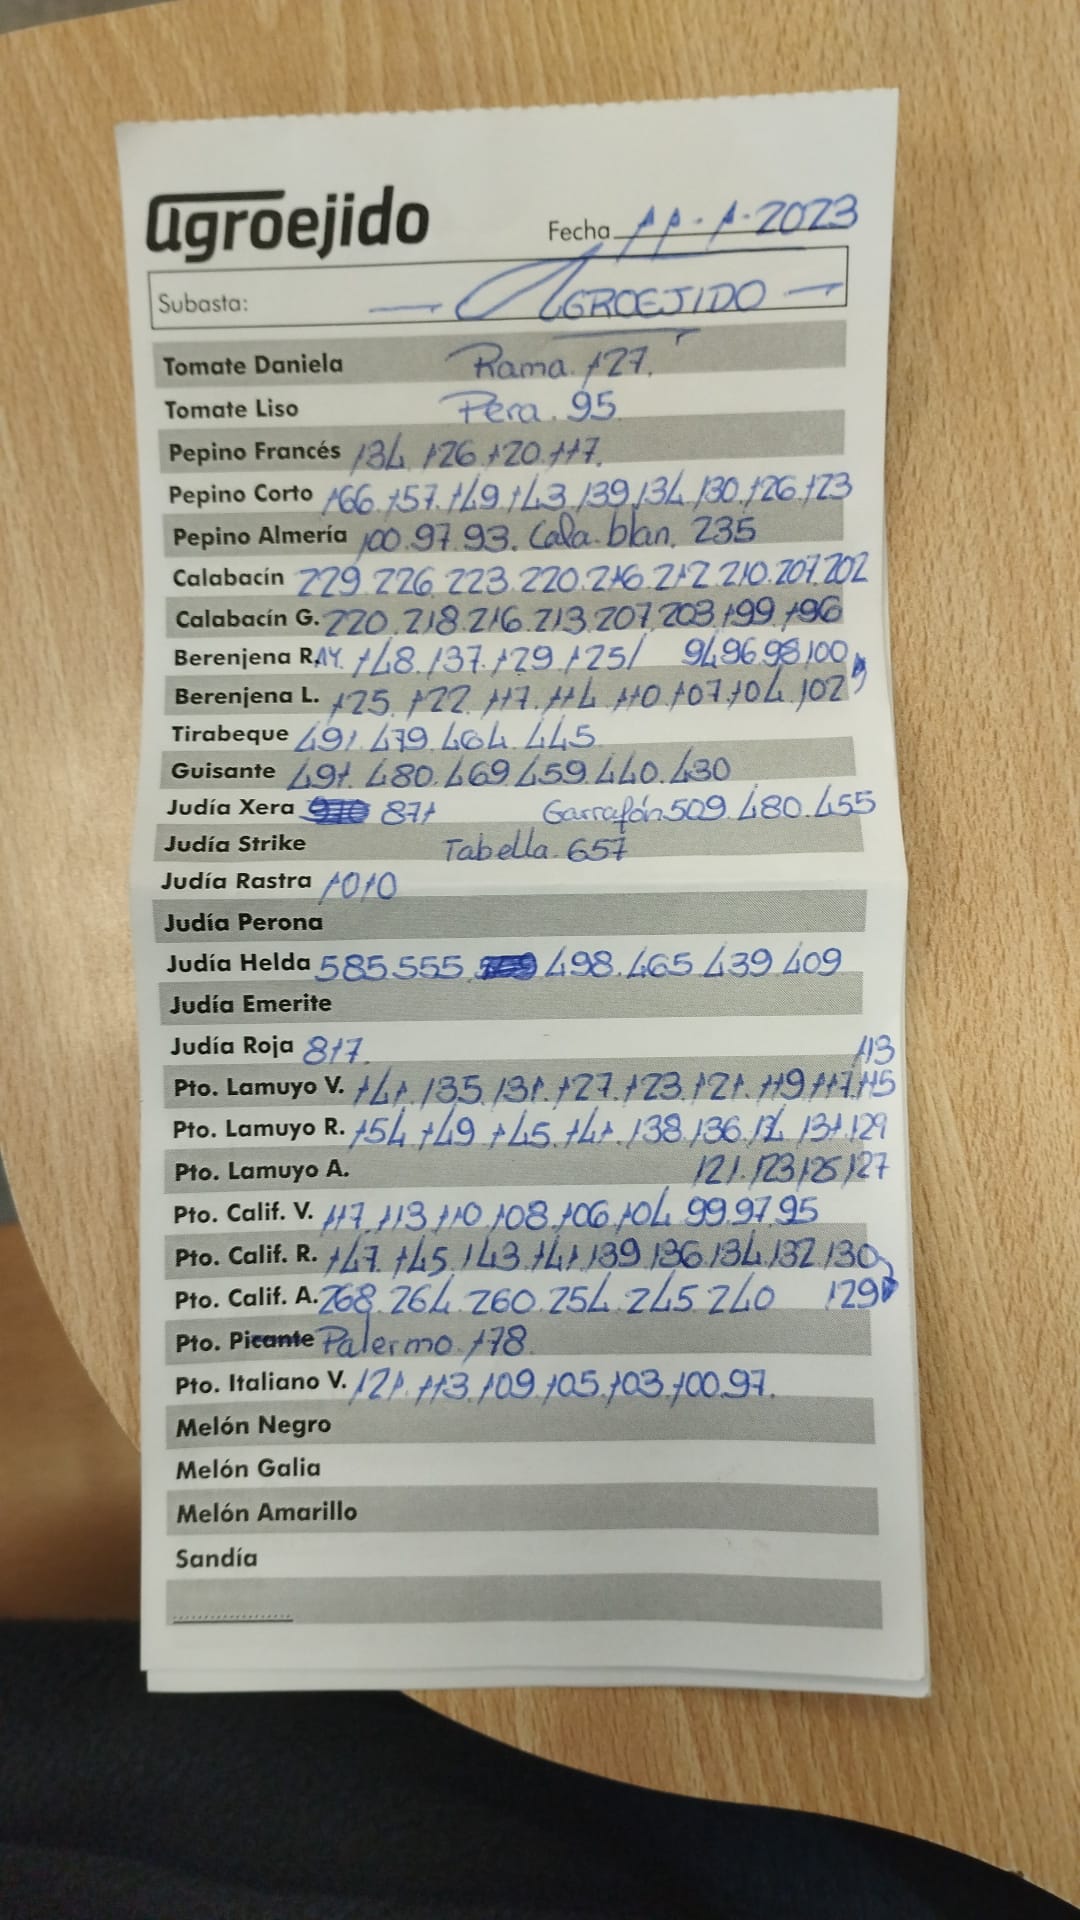 agroejido
Fecha 11-1-2023
Subasta: — AGROEJIDO —
Tomate Daniela Rama. 127.
Tomate Liso Pera. 95
Pepino Francés 134 126 120.117.
Pepino Corto 166.157.149 143.139.134.130.126.123
Pepino Almería 100.97.93. Cala. blan. 235
Calabacín 229.226.223.220.216.212.210.207.202
Calabacín G. 220.218.216.213.207.203.199.196
Berenjena R. AY. 148.137.129.125/ 94.96.98.100
Berenjena L. 125.122.117.114.110.107.104.102
Tirabeque 491.479.464.445
Guisante 491.480.469.459.440.430
Judía Xera 871 Garrafón 509.480.455
Judía Strike Tabella.657
Judía Rastra 1010
Judía Perona
Judía Helda 585.555 498.465 439 409
Judía Emerite
Judía Roja 817.
113
Pto. Lamuyo V. 141.135.131.127.123.121.119.117.115
Pto. Lamuyo R. 154.149.145.141.138.136. 131.129
Pto. Lamuyo A. 121.123.125.127
Pto. Calif. V. 117.113.110.108.106.104.99.97.95
Pto. Calif. R. 147.145.143.141.139.136.134.132.130
Pto. Calif. A. 268.264.260.254.245.240 129
Pto. Picante Palermo.178.
Pto. Italiano V. 121.113.109.105.103.100.97.
Melón Negro
Melón Galia
Melón Amarillo
Sandía